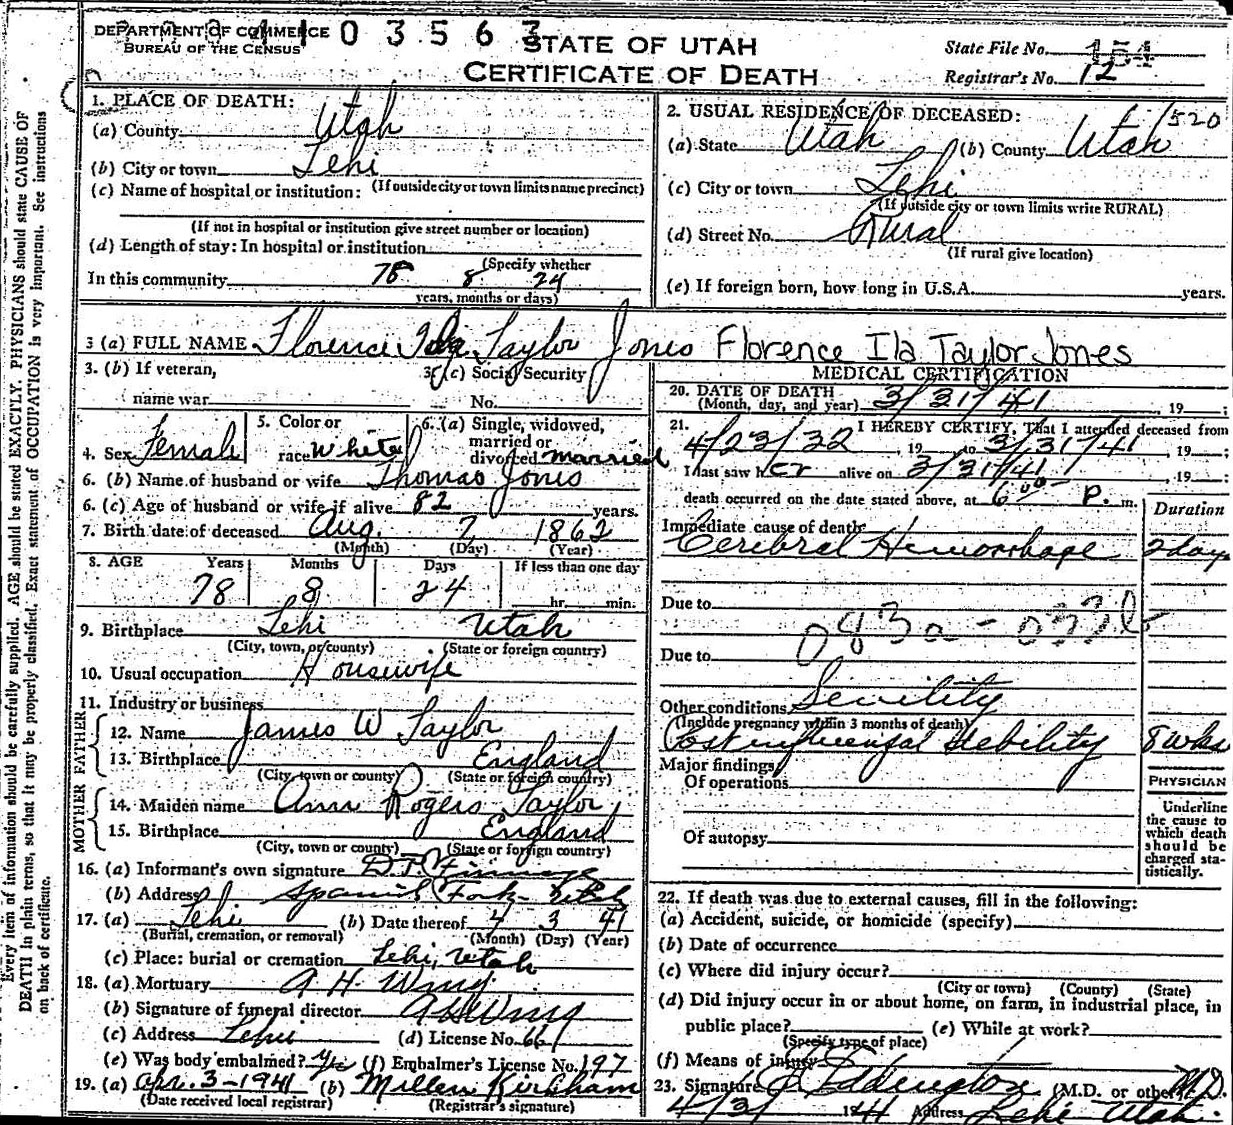 DEPARTMENT OF COMMERCE
BUREAU OF THE CENSUS
03563
STATE OF UTAH
CERTIFICATE OF DEATH
State File No. 154
Registrar's No. 12
1. PLACE OF DEATH:
(a) County Utah
(b) City or town Lehi
(If outside city or town limits name precinct)
(c) Name of hospital or institution:
(If not in hospital or institution give street number or location)
(d) Length of stay: In hospital or institution
(Specify whether
In this community 78 8 24
years, months or days)
2. USUAL RESIDENCE OF DECEASED: 1520
(a) State Utah (b) County Utah
(c) City or town Lehi
(If outside city or town limits write RURAL)
(d) Street No. Rural
(If rural give location)
(e) If foreign born, how long in U.S.A. years.
3 (a) FULL NAME Florence Ida Taylor Jones Florence Ila Taylor Jones
3. (b) If veteran,
name war
3. (c) Social Security
No.
4. Sex Female
5. Color or
race White
6. (a) Single, widowed,
married or
divorced married
6. (b) Name of husband or wife Thomas Jones
6. (c) Age of husband or wife if alive 82 years.
7. Birth date of deceased Aug. 7 1862
(Month) (Day) (Year)
8. AGE Years Months Days If less than one day
78 8 24 hr. min.
9. Birthplace Lehi Utah
(City, town, or county) (State or foreign country)
10. Usual occupation Housewife
11. Industry or business
FATHER
12. Name James W Taylor
13. Birthplace England
(City, town or county) (State or foreign country)
MOTHER
14. Maiden name Ann Rogers Taylor
15. Birthplace England
(City, town or county) (State or foreign country)
16. (a) Informant's own signature D.T.
(b) Address Spanish Fork Utah
17. (a) Lehi (b) Date thereof 4 3 41
(Burial, cremation, or removal) (Month) (Day) (Year)
(c) Place: burial or cremation Lehi, Utah
18. (a) Mortuary A H Wing
(b) Signature of funeral director A H Wing
(c) Address Lehi (d) License No. 661
(e) Was body embalmed? Yes (f) Embalmer's License No. 197
19. (a) Apr. 3-1941 (b) Millen Kirkham
(Date received local registrar) (Registrar's signature)
MEDICAL CERTIFICATION
20. DATE OF DEATH
(Month, day, and year) 3/31/41, 19 ;
21. I HEREBY CERTIFY, That I attended deceased from
4/23/32, 19 to 3/31/41, 19 ;
I last saw her alive on 3/31/41, 19 ;
death occurred on the date stated above, at 6:00 P. m.
Duration
Immediate cause of death
Cerebral Hemorrhage 2 days
Due to
083a-
Due to
Other conditions Senility
(Include pregnancy within 3 months of death)
Post influenzal debility 8 wks
Major findings:
Of operations
Of autopsy
PHYSICIAN
Underline
the cause to
which death
should be
charged sta-
tistically.
22. If death was due to external causes, fill in the following:
(a) Accident, suicide, or homicide (specify)
(b) Date of occurrence
(c) Where did injury occur?
(City or town) (County) (State)
(d) Did injury occur in or about home, on farm, in industrial place, in
public place? (e) While at work?
(Specify type of place)
(f) Means of injury
23. Signature Eddington (M.D. or other) M.D.
4/3/ 1941 Address Lehi Utah.
Every item of information should be carefully supplied. AGE should be stated EXACTLY. PHYSICIANS should state CAUSE OF
DEATH in plain terms, so that it may be properly classified. Exact statement of OCCUPATION is very important. See instructions
on back of certificate.